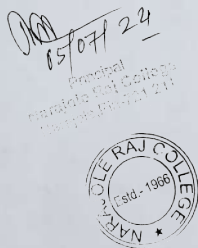 05/07/24
Principal
Narajole Raj College
NARAJOLE RAJ COLLEGE
Estd.-1966
★